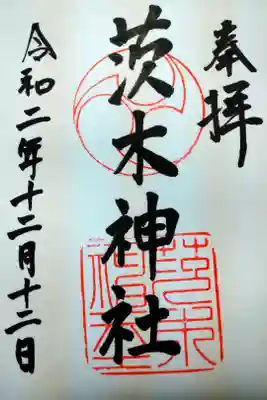 奉拝
茨木神社
令和二年十二月十二日